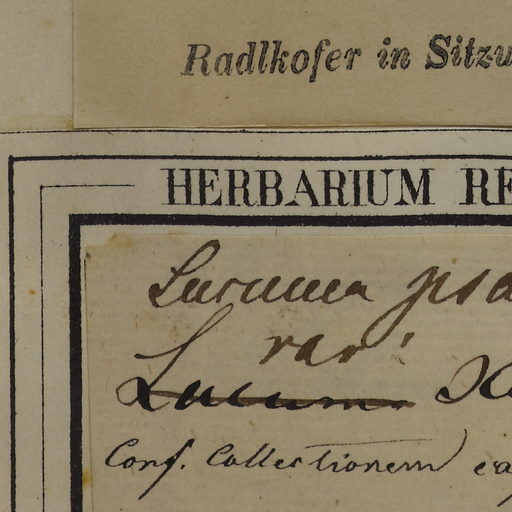 Radlkofer in Sitzu
HERBARIUM RE
Lucuma psa
var.
Lucuma
Conf. Collectionem